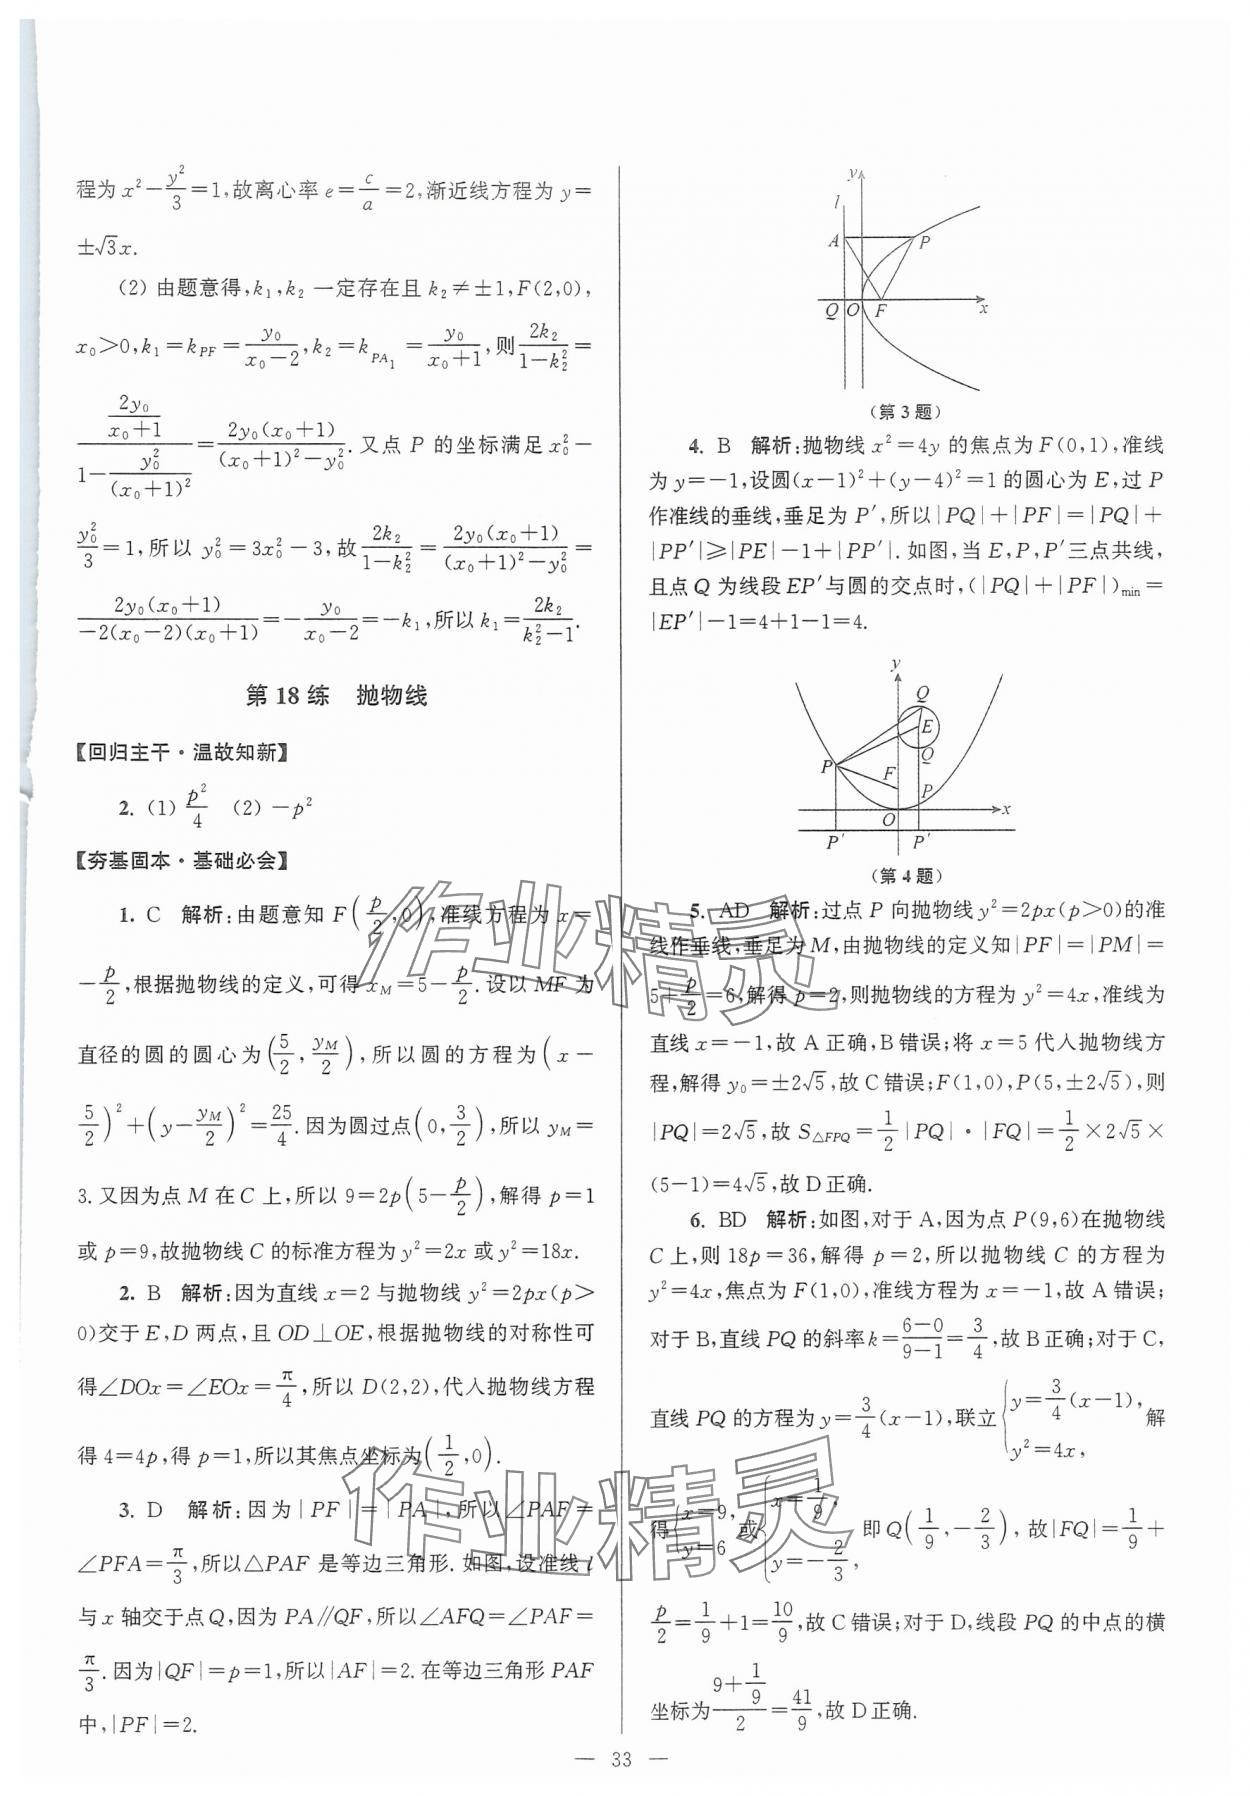 程为 x²－y²/3＝1,故离心率 e＝c/a＝2,渐近线方程为 y＝
±√3x.
(2) 由题意得,k₁,k₂ 一定存在且 k₂≠±1,F(2,0),
x₀＞0,k₁＝k_{PF}＝y₀/(x₀－2),k₂＝k_{PA₁}＝y₀/(x₀＋1),则 2k₂/(1－k₂²)＝
(2y₀/(x₀＋1))/(1－y₀²/(x₀＋1)²)＝2y₀(x₀＋1)/((x₀＋1)²－y₀²).又点 P 的坐标满足 x₀²－
y₀²/3＝1,所以 y₀²＝3x₀²－3,故 2k₂/(1－k₂²)＝2y₀(x₀＋1)/((x₀＋1)²－y₀²)＝
2y₀(x₀＋1)/(－2(x₀－2)(x₀＋1))＝－y₀/(x₀－2)＝－k₁,所以 k₁＝2k₂/(k₂²－1).
第 18 练 抛物线
【回归主干·温故知新】
2. (1) p²/4 (2) －p²
【夯基固本·基础必会】
1. C 解析:由题意知 F(p/2,0),准线方程为 x＝
－p/2,根据抛物线的定义,可得 x_M＝5－p/2.设以 MF 为
直径的圆的圆心为(5/2,y_M/2),所以圆的方程为(x－
5/2)²＋(y－y_M/2)²＝25/4.因为圆过点(0,3/2),所以 y_M＝
3.又因为点 M 在 C 上,所以 9＝2p(5－p/2),解得 p＝1
或 p＝9,故抛物线 C 的标准方程为 y²＝2x 或 y²＝18x.
2. B 解析:因为直线 x＝2 与抛物线 y²＝2px(p＞
0)交于 E,D 两点,且 OD⊥OE,根据抛物线的对称性可
得∠DOx＝∠EOx＝π/4,所以 D(2,2),代入抛物线方程
得 4＝4p,得 p＝1,所以其焦点坐标为(1/2,0).
3. D 解析:因为|PF|＝|PA|,所以∠PAF＝
∠PFA＝π/3,所以△PAF 是等边三角形.如图,设准线 l
与 x 轴交于点 Q,因为 PA∥QF,所以∠AFQ＝∠PAF＝
π/3.因为|QF|＝p＝1,所以|AF|＝2.在等边三角形 PAF
中,|PF|＝2.
y
l
A
P
Q O F x
(第 3 题)
4. B 解析:抛物线 x²＝4y 的焦点为 F(0,1),准线
为 y＝－1,设圆(x－1)²＋(y－4)²＝1 的圆心为 E,过 P
作准线的垂线,垂足为 P′,所以|PQ|＋|PF|＝|PQ|＋
|PP′|≥|PE|－1＋|PP′|.如图,当 E,P,P′三点共线,
且点 Q 为线段 EP′与圆的交点时,(|PQ|＋|PF|)min＝
|EP′|－1＝4＋1－1＝4.
y
Q
E
Q
P
F
P
O
x
P′ P′
(第 4 题)
5. AD 解析:过点 P 向抛物线 y²＝2px(p＞0)的准
线作垂线,垂足为 M,由抛物线的定义知|PF|＝|PM|＝
5＋p/2＝6,解得 p＝2,则抛物线的方程为 y²＝4x,准线为
直线 x＝－1,故 A 正确,B 错误;将 x＝5 代入抛物线方
程,解得 y₀＝±2√5,故 C 错误;F(1,0),P(5,±2√5),则
|PQ|＝2√5,故 S△FPQ＝1/2|PQ|·|FQ|＝1/2×2√5×
(5－1)＝4√5,故 D 正确.
6. BD 解析:如图,对于 A,因为点 P(9,6)在抛物线
C 上,则 18p＝36,解得 p＝2,所以抛物线 C 的方程为
y²＝4x,焦点为 F(1,0),准线方程为 x＝－1,故 A 错误;
对于 B,直线 PQ 的斜率 k＝(6－0)/(9－1)＝3/4,故 B 正确;对于 C,
直线 PQ 的方程为 y＝3/4(x－1),联立{y＝3/4(x－1), y²＝4x, 解
得{x＝9, y＝6 或{x＝1/9, y＝－2/3, 即 Q(1/9,－2/3),故|FQ|＝1/9＋
p/2＝1/9＋1＝10/9,故 C 错误;对于 D,线段 PQ 的中点的横
坐标为(9＋1/9)/2＝41/9,故 D 正确.
— 33 —
作业精灵
作业精灵